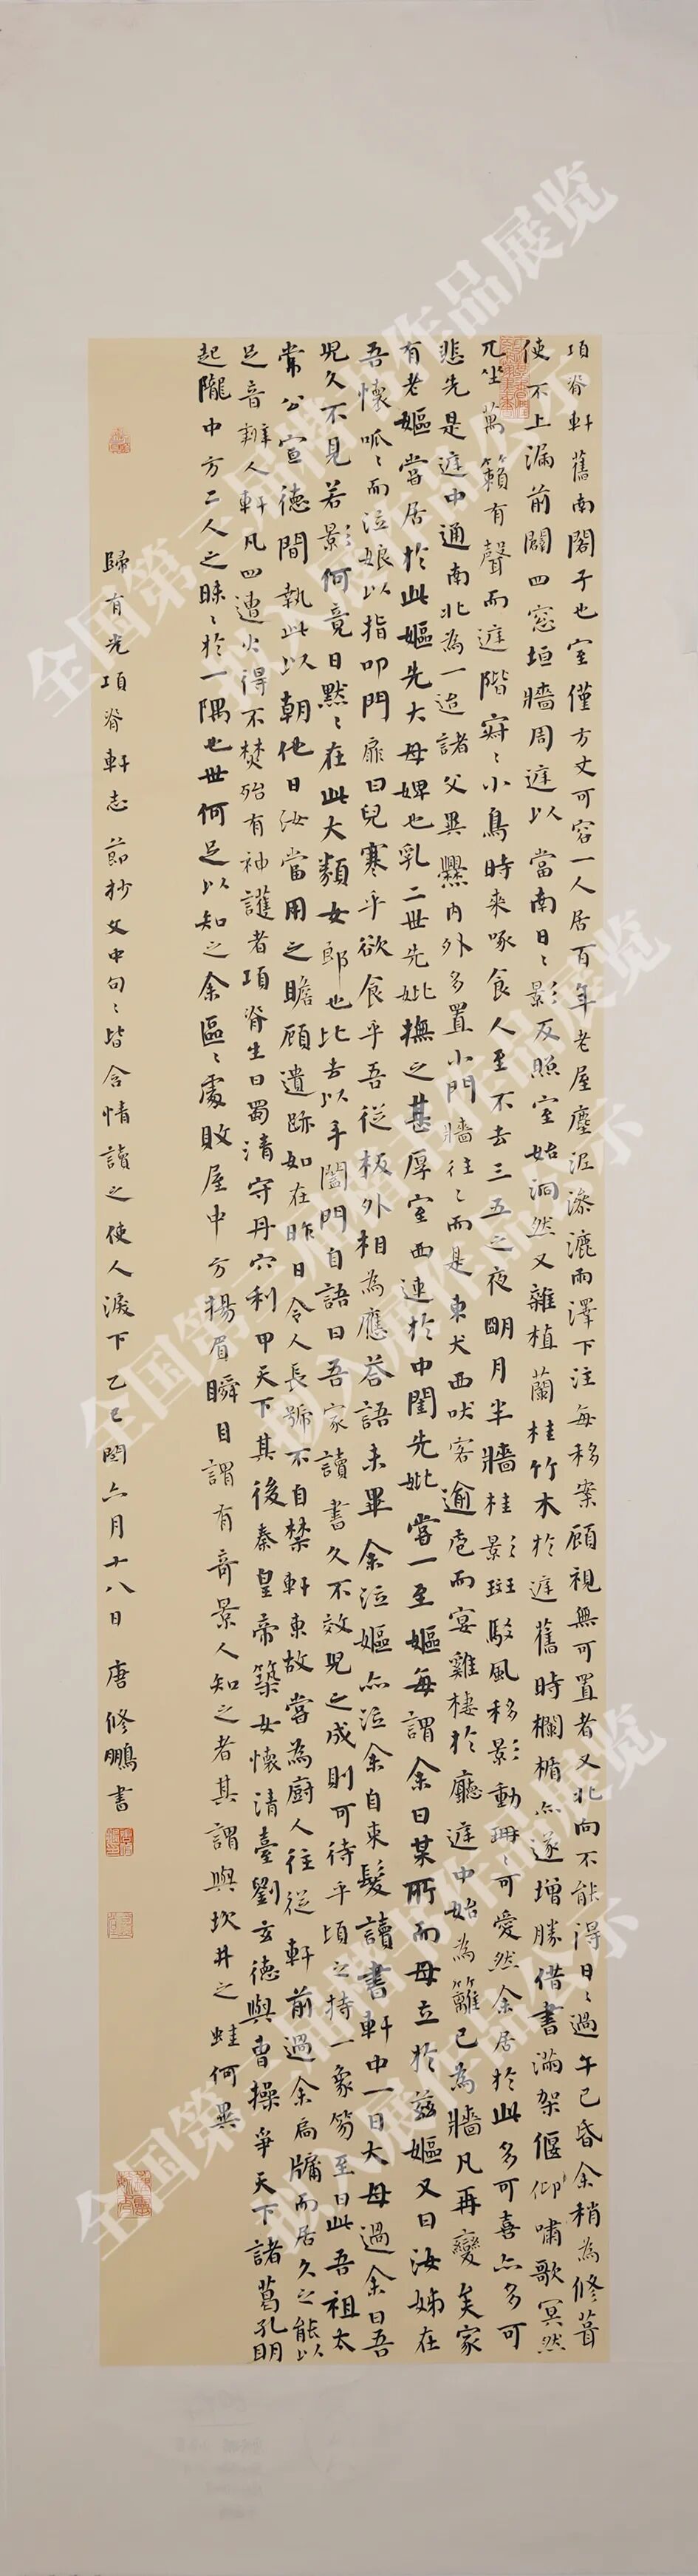 項脊軒舊南閣子也室僅方丈可容一人居百年老屋塵泥滲漉雨澤下注每移案顧視無可置者又北向不能得日〻過午已昏余稍為修葺
使不上漏前闢四窓垣牆周庭以當南日〻影反照室始洞然又雜植蘭桂竹木於庭舊時欄楯亦遂增勝借書滿架偃仰嘯歌冥然
兀坐萬籟有聲而庭階寂〻小鳥時來啄食人至不去三五之夜明月半牆桂影斑駁風移影動珊〻可愛然余居於此多可喜亦多可
悲先是庭中通南北為一迨諸父異爨內外多置小門牆往〻而是東犬西吠客逾庖而宴雞棲於廳庭中始為籬已為牆凡再變矣家
有老嫗嘗居於此嫗先大母婢也乳二世先妣撫之甚厚室西連於中閨先妣嘗一至嫗每謂余曰某所而母立於茲嫗又曰汝姊在
吾懷呱〻而泣娘以指叩門扉曰兒寒乎欲食乎吾從板外相為應答語未畢余泣嫗亦泣余自束髮讀書軒中一日大母過余曰吾
兒久不見若影何竟日默〻在此大類女郎也比去以手闔門自語曰吾家讀書久不效兒之成則可待乎頃之持一象笏至曰此吾祖太
常公宣德間執此以朝他日汝當用之瞻顧遺跡如在昨日令人長號不自禁軒東故嘗為廚人往從軒前過余扃牖而居久之能以
足音辨人軒凡四遭火得不焚殆有神護者項脊生曰蜀清守丹穴利甲天下其後秦皇帝築女懷清臺劉玄德與曹操爭天下諸葛孔明
起隴中方二人之昧〻於一隅也世何足以知之余區〻處敗屋中方揚眉瞬目謂有奇景人知之者其謂與坎井之蛙何異
歸有光項脊軒志節抄文中句〻皆含情讀之使人淚下乙巳閏六月十八日唐修鵬書
全国第三届楷书作品展览
拟入展作品公示
全国第三届楷书作品展览
拟入展作品公示
全国第三届楷书作品展览
拟入展作品公示